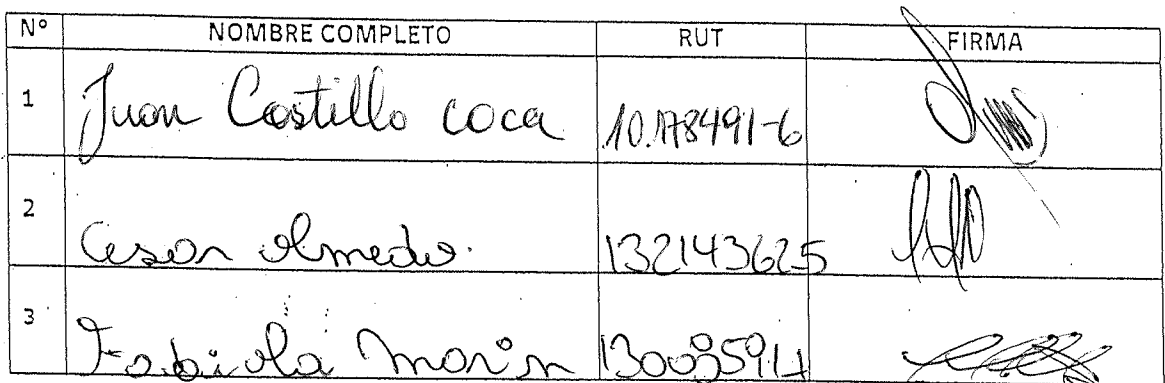 Nº NOMBRE COMPLETO RUT FIRMA
1 Juan Castillo coca 10.178491-6
2 Cesar Olmedo. 132143625
3 Fabiola Morin